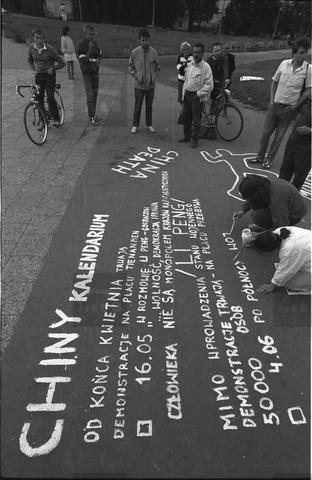 CHINY KALENDARIUM
OD KOŃCA KWIETNIA TRWAJĄ
DEMONSTRACJE NA PLACU TIENANMEN
16.05 „W ROZMOWIE LI PENG-GORBACZOW
„WOLNOŚĆ, DEMOKRACJA I PRAWA
CZŁOWIEKA NIE SĄ MONOPOLEM KRAJÓW KAPITALISTYCZNYCH
/LI PENG/
MIMO WPROWADZENIA STANU WOJENNEGO
DEMONSTRACJE TRWAJĄ - NA PLACU PRZEBYWA
50 000 OSÓB
4.06 PO PÓŁNOCY
CHINA
DEATH